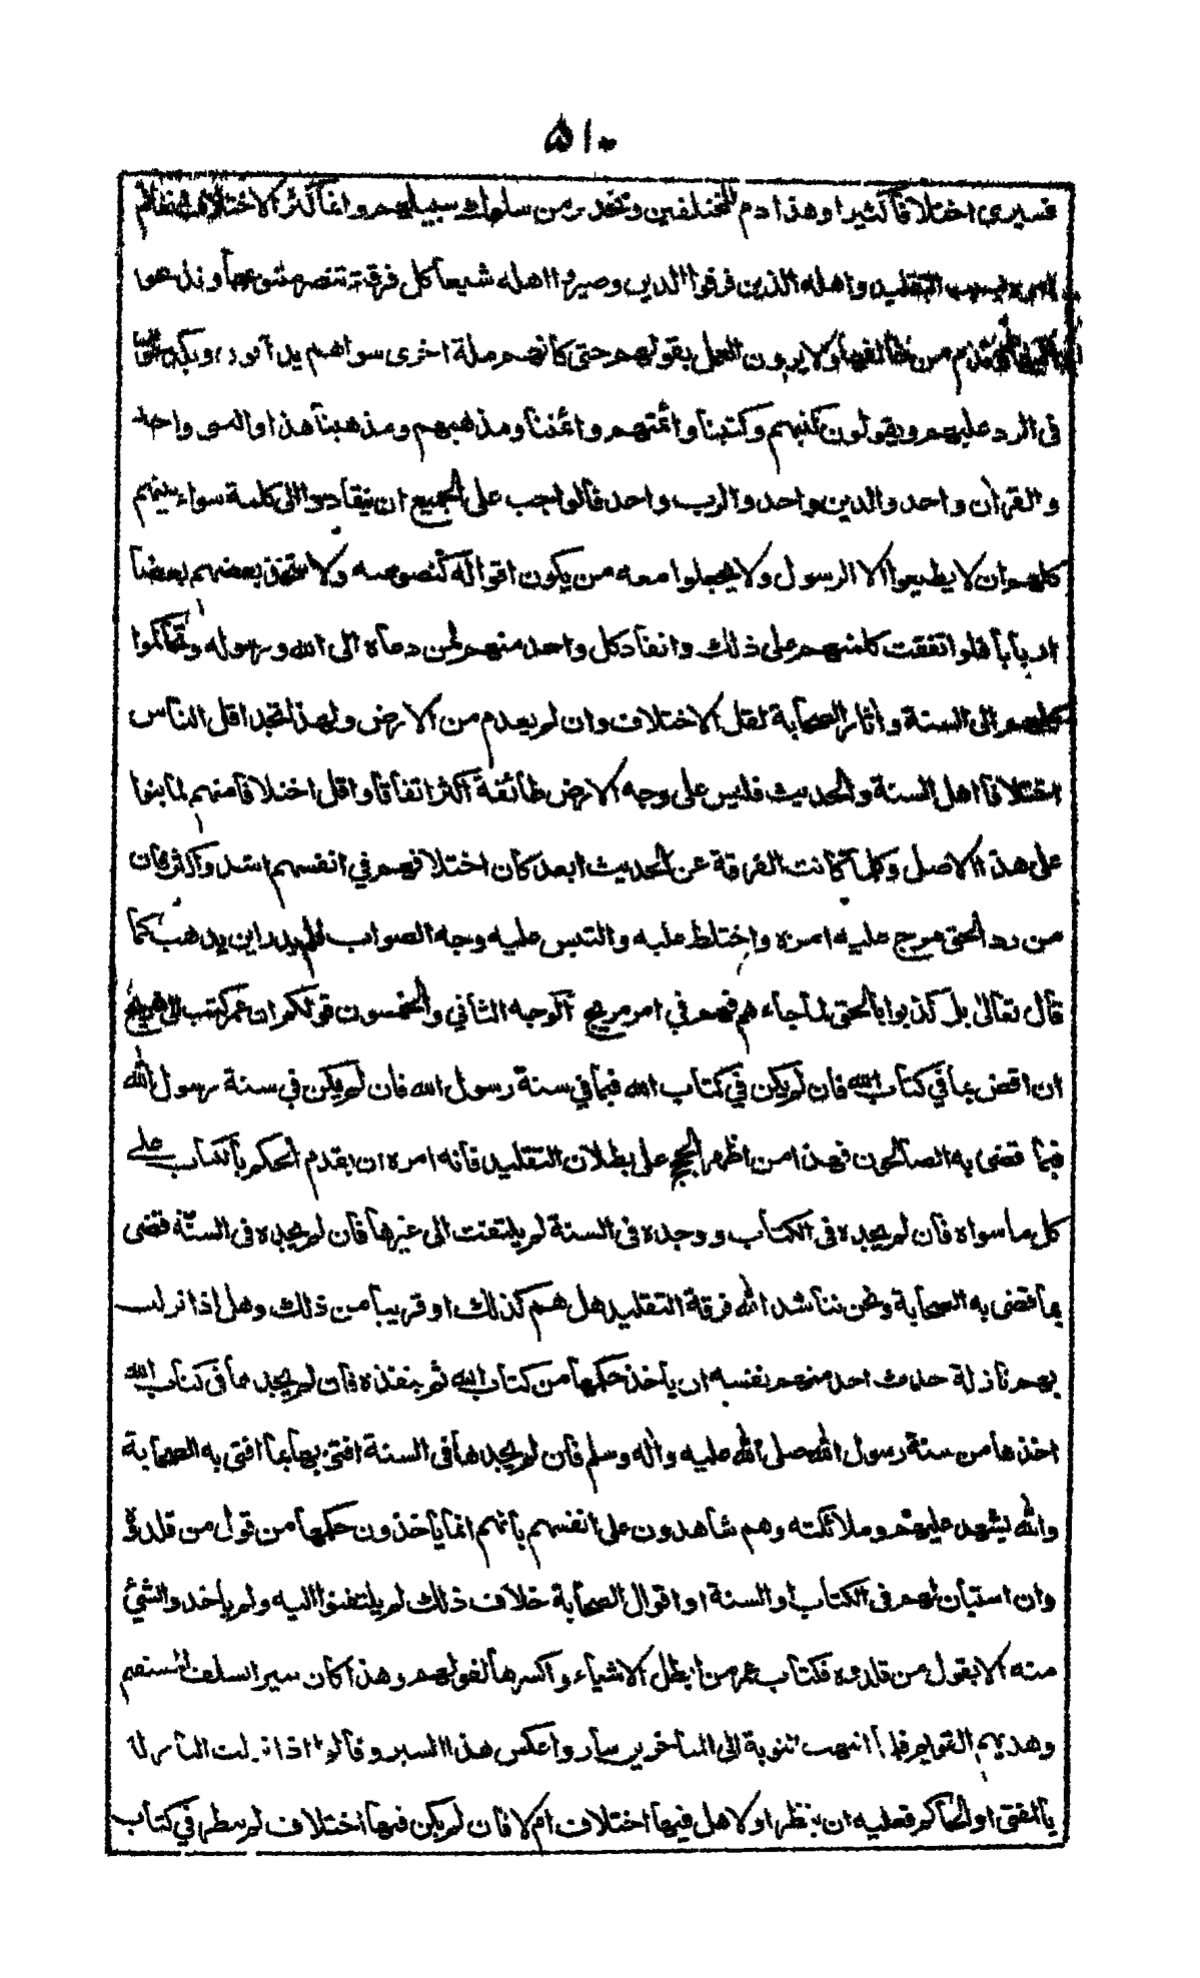 ٥١٠
فسيرى اختلافا كثيرا وهذا ذم للمختلفين وتحذير من سلوك سبيلهم وانما كثر الاختلاف وتفاقم
امره بسبب التقليد واهله الذين فرقوا الدين وصيروا اهله شيعا كل فرقة تنصر متبوعها وتدعوا
اليه وتذم من خالفها ولا يرون العمل بقولهم حتى كانهم ملة اخرى سواهم يدأبون ويكدحون
فى الرد عليهم ويقولون كتبهم وكتبنا وائمتهم وائمتنا ومذهبهم ومذهبنا هذا والنبى واحد
والقرآن واحد والدين واحد والرب واحد فالواجب على الجميع ان ينقادوا الى كلمة سواء بينهم
كلهم وان لا يطيعوا الا الرسول ولا يجعلوا معه من يكون اقواله كنصوصه ولا يتخذ بعضهم بعضا
اربابا فلو اتفقت كلمتهم على ذلك وانقاد كل واحد منهم لمن دعاه الى الله ورسوله وتحاكموا
كلهم الى السنة وآثار الصحابة لقل الاختلاف وان لم يعدم من الارض ولهذا تجد اقل الناس
اختلافا اهل السنة والحديث فليس على وجه الارض طائفة اكثر اتفاقا واقل اختلافا منهم لما بنوا
على هذا الاصل وكلما كانت الفرقة عن الحديث ابعد كان اختلافهم في انفسهم اشد واكثر فان
من رد الحق مرج عليه امره واختلط عليه والتبس عليه وجه الصواب فلم يدر اين يذهب كما
قال تعالى بل كذبوا بالحق لما جاءهم فهم في امر مريج الوجه الثاني والخمسون قولكم ان عمر كتب الى شريح
ان اقض بما في كتاب الله فان لم يكن في كتاب الله فبما في سنة رسول الله فان لم يكن في سنة رسول الله
فبما قضى به الصالحون فهذا من اظهر الحجج على بطلان التقليد فانه امره ان يقدم الحكم بالكتاب على
كل ما سواه فان لم يجده فى الكتاب ووجده فى السنة لم يلتفت الى غيرها فان لم يجده فى السنة قضى
بما قضى به الصحابة ونحن نناشد الله فرقة التقليد هل هم كذلك او قريبا من ذلك وهل اذا نزلت
بهم نازلة حدث احد منهم نفسه ان ياخذ حكمها من كتاب الله ثم ينفذه فان لم يجدها فى كتاب الله
اخذها من سنة رسول الله صلى الله عليه وآله وسلم فان لم يجدها فى السنة افتى بها بما افتى به الصحابة
والله يشهد عليهم وملائكته وهم شاهدون على انفسهم بانهم انما ياخذون حكمها من قول من قلدوه
وان استبان لهم فى الكتاب او السنة او اقوال الصحابة خلاف ذلك لم يلتفتوا اليه ولم ياخذوا بشيئ
منه الا بقول من قلدوه فكتاب عمر من ابطل الاشياء واكسرها لقولهم وهذا كان سير السلف المستقيم
وهديهم القويم فلما انتهت النوبة الى المتأخرين ساروا عكس هذا السير وقالوا اذا نزلت النازلة
بالمفتى او الحاكم فعليه ان ينظر اولا هل فيها اختلاف ام لا فان لم يكن فيها اختلاف لم ينظر في كتاب